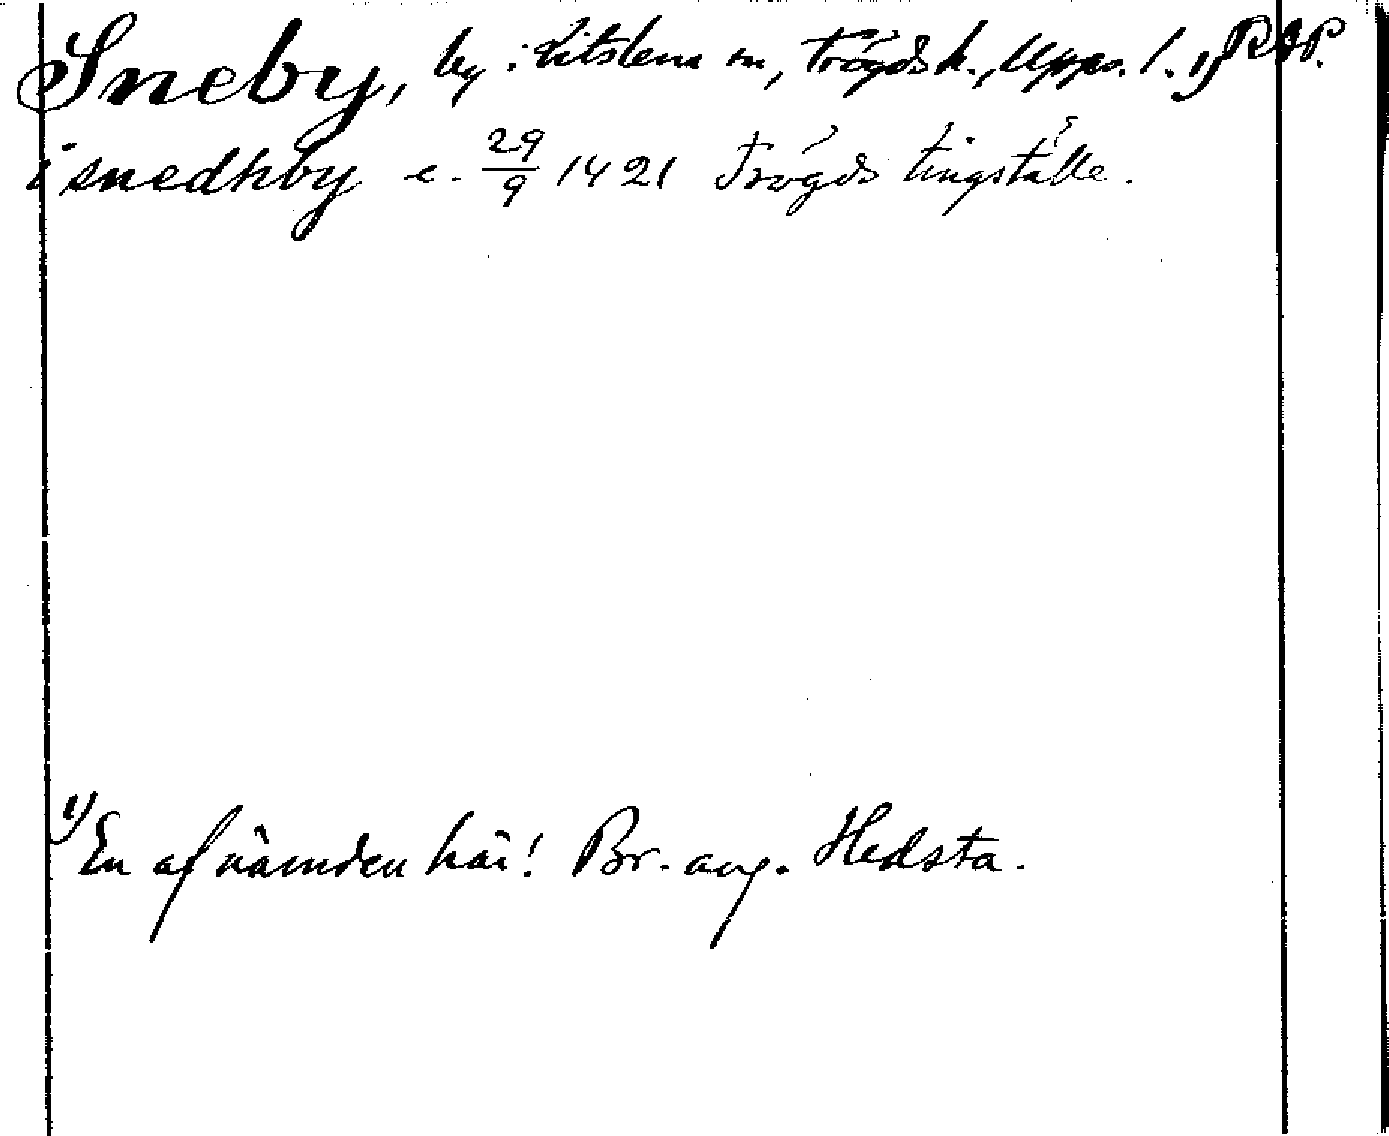 Sneby, by i Litslena sn, Trögds h., Upps. l. 1) RAP.
i snedhby c. 29/9 1421 Trögds tingställe.
1) En af nämnden här! Br. ang. Hedsta.